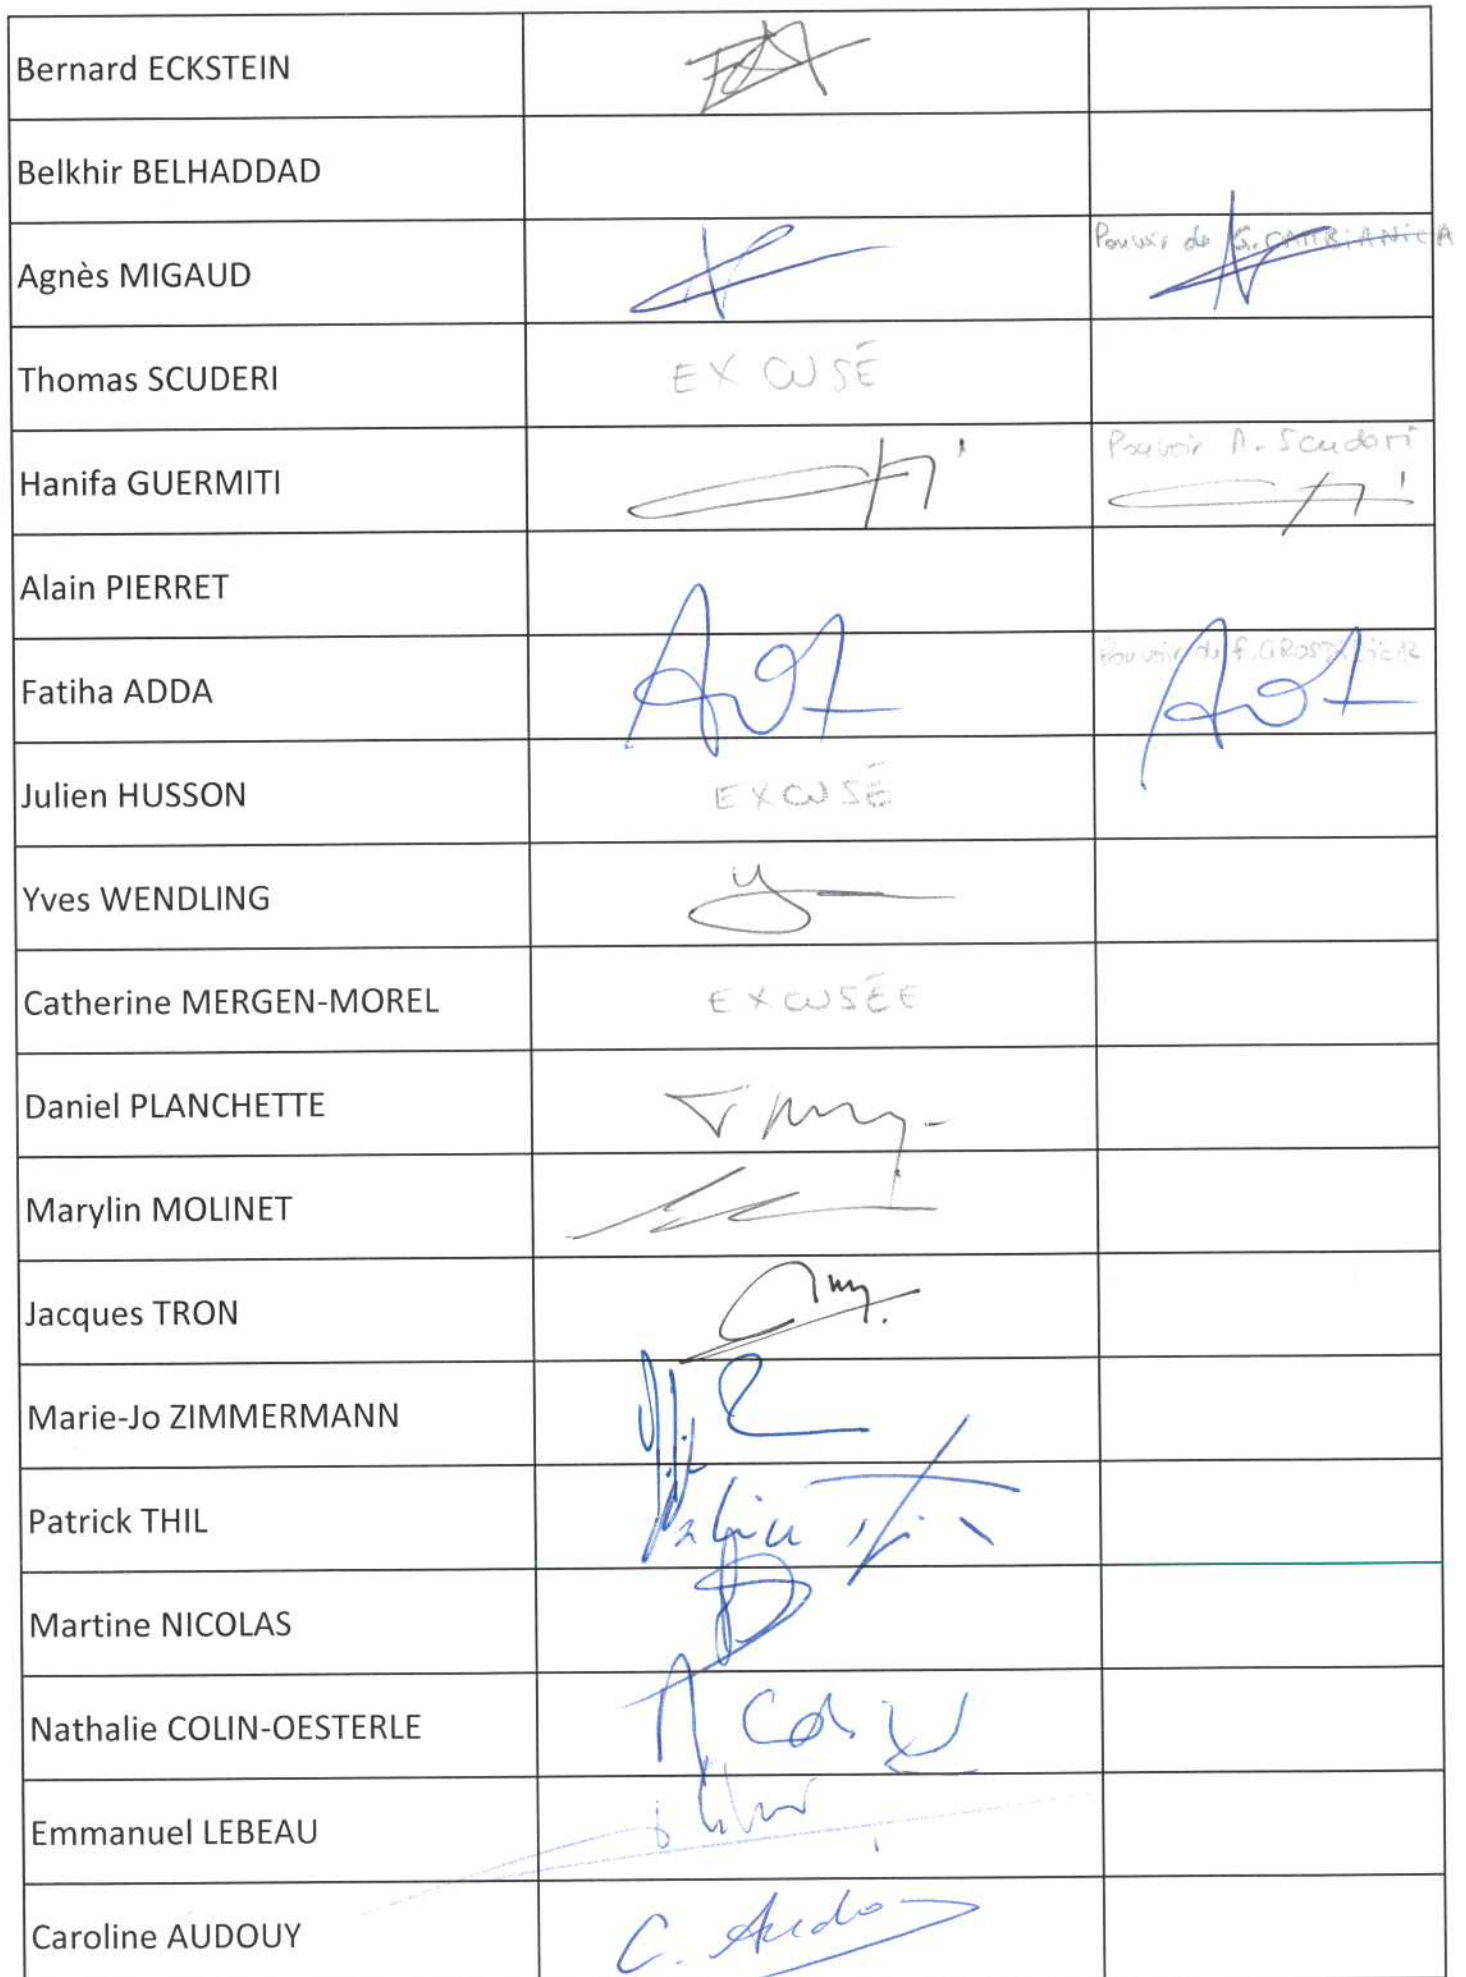 Bernard ECKSTEIN
Belkhir BELHADDAD
Agnès MIGAUD
Pouvoir de G. CAMBIANICA
Thomas SCUDERI
EXCUSÉ
Hanifa GUERMITI
Pouvoir
Alain PIERRET
Fatiha ADDA
Pouvoir de F. GROSDIDIER
Julien HUSSON
EXCUSÉ
Yves WENDLING
Catherine MERGEN-MOREL
EXCUSÉE
Daniel PLANCHETTE
Marylin MOLINET
Jacques TRON
Marie-Jo ZIMMERMANN
Patrick THIL
Martine NICOLAS
Nathalie COLIN-OESTERLE
Emmanuel LEBEAU
Caroline AUDOUY